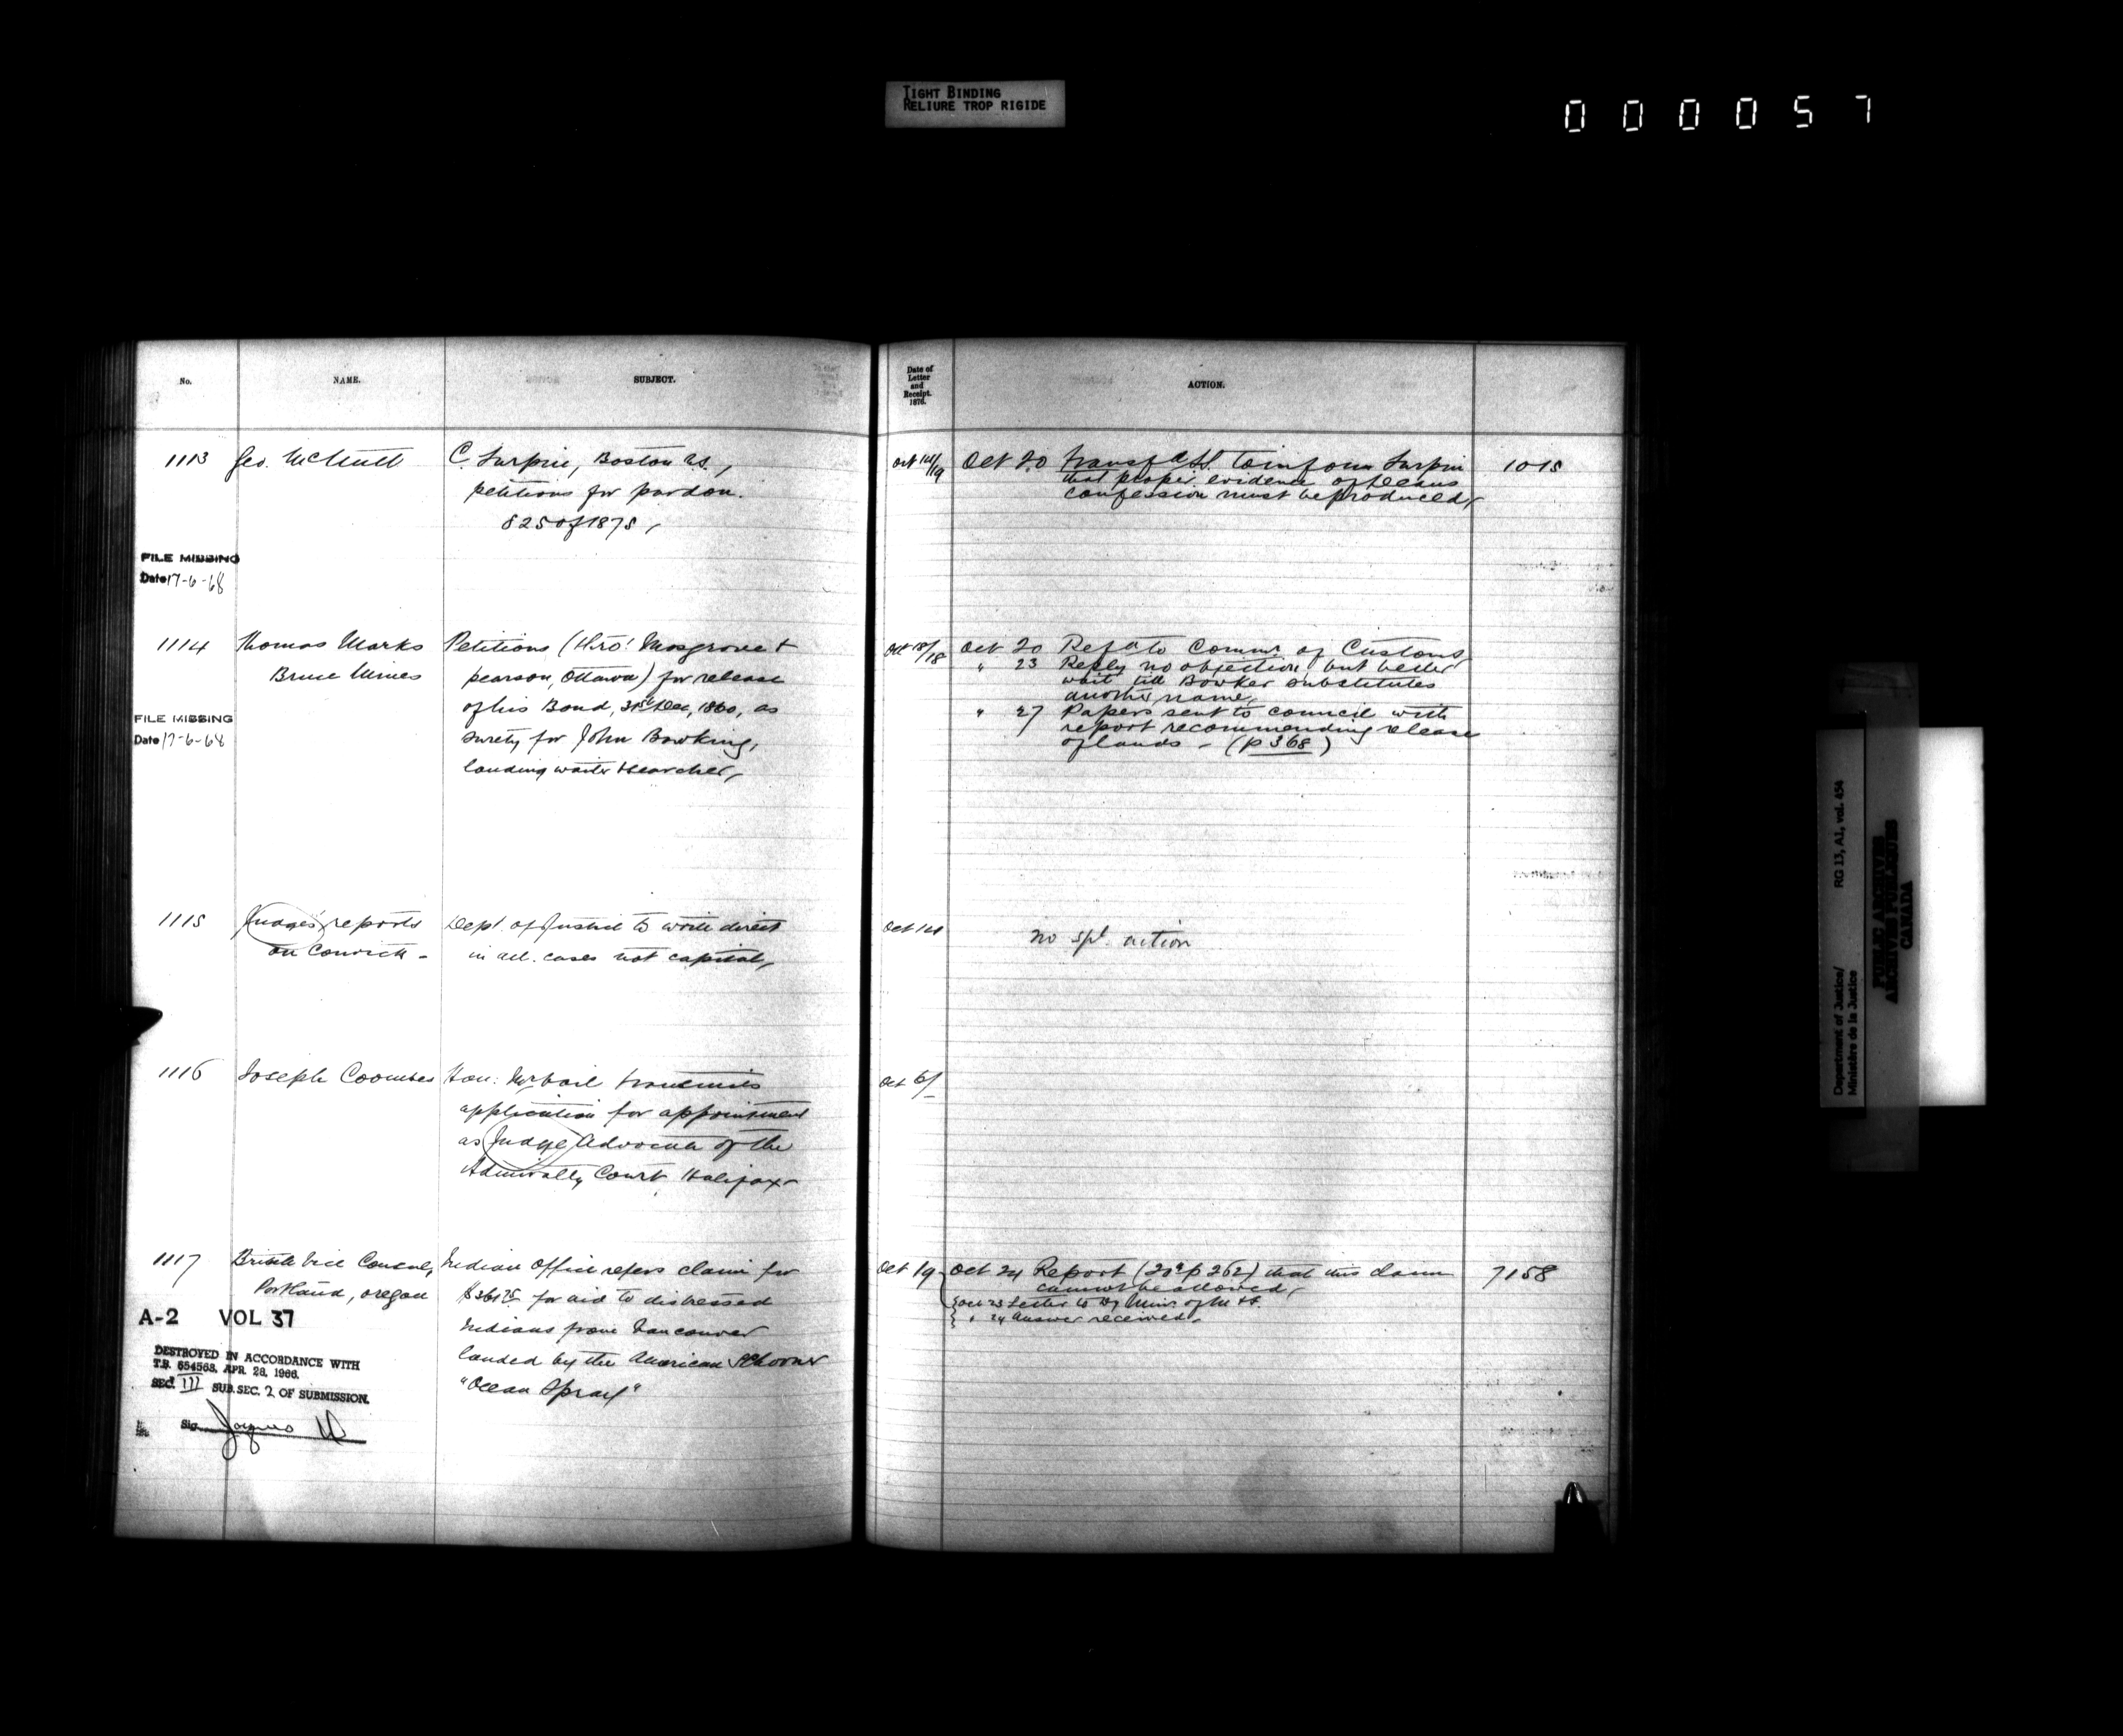 TIGHT BINDING
RELIURE TROP RIGIDE
000057
No.
NAME.
SUBJECT.
Date of
Letter
and
Receipt.
1876.
ACTION.
1113
Geo. McNutt
C. Turpin, Boston
petitions for pardon.
825 of 1875,
Oct 14/19
Oct 20
to inform Turpin
that proper evidence of
confession must be produced,
1015
FILE MISSING
Date 17-6-68
1114
Thomas Marks
Bruce Mines
Petitions Mosgrove &
pearson, Ottawa) for release
of his Bond, 31st Dec, 1860, as
surety for John Bowking,
landing waiter & searcher,
Oct 18/18
Oct 20 Refd to Commr. of Customs
" 23 Reply no objection, but better
wait till Bowker substitutes
another name,
" 27 Papers sent to council with
report recommending release
of lands - (p 368)
FILE MISSING
Date 17-6-68
1115
Judges' reports
on Convicts -
Dept. of Justice to write direct
in all cases not capital,
Oct 14
no spl. action
1116
Joseph Coombes
Hon: Mr Vail transmits
application for appointment
as Judge Advocate of the
Admiralty Court Halifax
Oct 6/
1117
British Vice Consul,
Portland, Oregon
Indian Office refers claim for
$361 75 for aid to distressed
Indians from Vancouver
landed by the American Schooner
"Ocean Spray"
Oct 19
Oct 24 Report (20a p 262) that this claim
cannot be allowed,
Oct 23 Letter to Dy Minr. of M & F.
" 24 Answer received,
7158
A-2 VOL 37
DESTROYED IN ACCORDANCE WITH
T.B. 654563, APR. 28, 1966.
SEC. III SUB. SEC. 2 OF SUBMISSION.
Sig.
Department of Justice/
Ministère de la Justice
RG 13, A1, vol. 454
PUBLIC ARCHIVES
ARCHIVES PUBLIQUES
CANADA